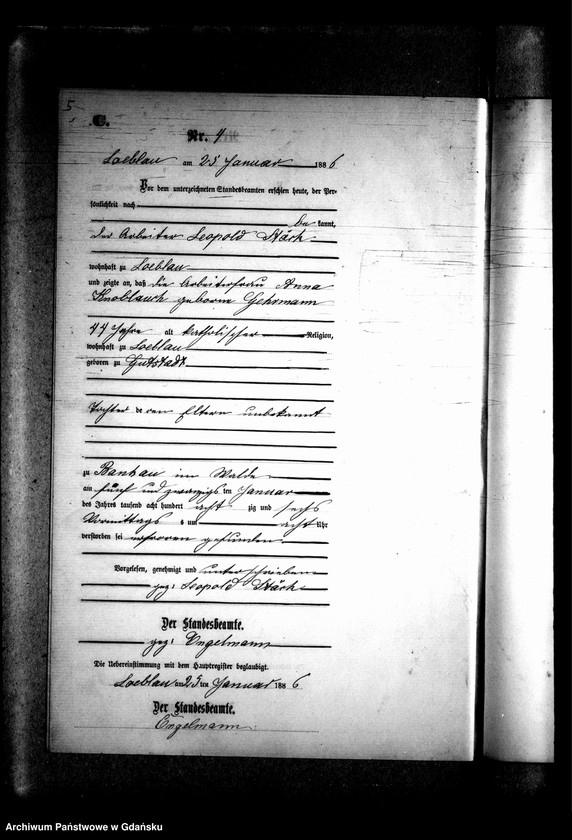 5
C.
Nr. 4
Loeblau am 25 Januar 1886
Vor dem unterzeichneten Standesbeamten erschien heute, der Per-
sönlichkeit nach
be kannt,
der Arbeiter Leopold Stäck
wohnhaft zu Loeblau
und zeigte an, daß die Arbeiterfrau Anna
Knoblauch geborne Gehrmann
44 Jahre alt katholischer Religion,
wohnhaft zu Loeblau
geboren zu Gutstadt
Tochter deren Eltern unbekannt
zu Bankau im Walde
am fünf und zwanzigs ten Januar
des Jahres tausend acht hundert acht zig und sechs
Vormittags um acht Uhr
verstorben sei erfroren gefunden
Vorgelesen, genehmigt und unterschrieben
gez: Leopold Stäck
Der Standesbeamte.
gez: Engelmann
Die Uebereinstimmung mit dem Hauptregister beglaubigt.
Loeblau am 25 ten Januar 1886
Der Standesbeamte.
Engelmann
Archiwum Państwowe w Gdańsku